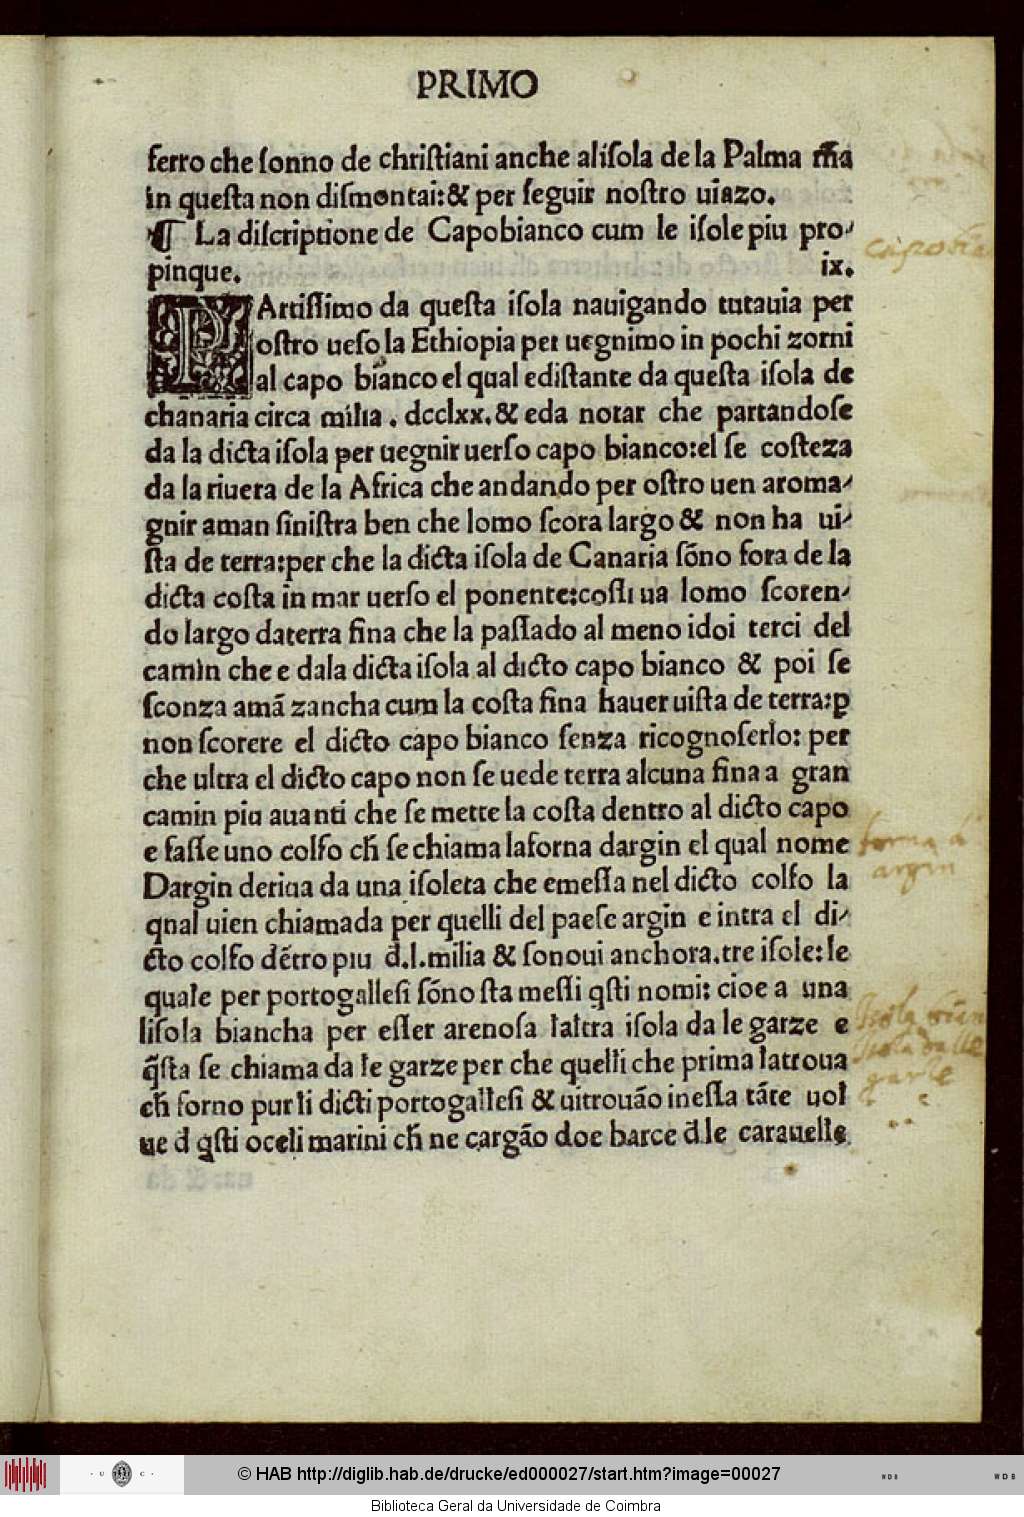 PRIMO
ferro che ſonno de chriſtiani anche aliſola de la Palma m̃a
in queſta non diſmontai:& per ſeguir noſtro uiazo.
¶ La diſcriptione de Capobianco cum le iſole piu pro-
pinque. ix.
PArtiſſimo da queſta iſola nauigando tutauia per
oſtro ueſo la Ethiopia per uegnimo in pochi zorni
al capo bianco el qual ediſtante da queſta iſola de
chanaria circa milia . dcclxx. & eda notar che partandoſe
da la dicta iſola per uegnir uerſo capo bianco:el ſe coſteza
da la riuera de la Africa che andando per oſtro uen aroma-
gnir aman ſiniſtra ben che lomo ſcora largo & non ha ui-
ſta de terra:per che la dicta iſola de Canaria ſõno fora de la
dicta coſta in mar uerſo el ponente:coſti ua lomo ſcoren-
do largo daterra fina che la paſſado al meno idoi terci del
camin che e dala dicta iſola al dicto capo bianco & poi ſe
ſconza amã zancha cum la coſta fina hauer uiſta de terra:ꝑ
non ſcorere el dicto capo bianco ſenza ricognoſerlo: per
che ultra el dicto capo non ſe uede terra alcuna fina a gran
camin piu auanti che ſe mette la coſta dentro al dicto capo
e faſſe uno colfo ch̃ ſe chiama laforna dargin el qual nome
Dargin deriua da una iſoleta che emeſſa nel dicto colfo la
qnal uien chiamada per quelli del paeſe argin e intra el di-
cto colfo dẽtro piu d̃.l.milia & ſonoui anchora.tre iſole:le
quale per portogalleſi ſõno ſta meſſi q̃ſti nomi: cioe a una
liſola biancha per eſſer arenoſa laltra iſola da le garze e
q̃ſta ſe chiama da le garze per che quelli che prima latroua
ch̃ forno pur li dicti portogalleſi & uitrouão ineſſa tãte uol
ue d̃ q̃ſti oceli marini ch̃ ne cargão doe barce d̃ le carauelle
capobia
forna d'
argin
Iſola
iſola dalle
garze
© HAB http://diglib.hab.de/drucke/ed000027/start.htm?image=00027
· U C ·
WDB
WDB
Biblioteca Geral da Universidade de Coimbra